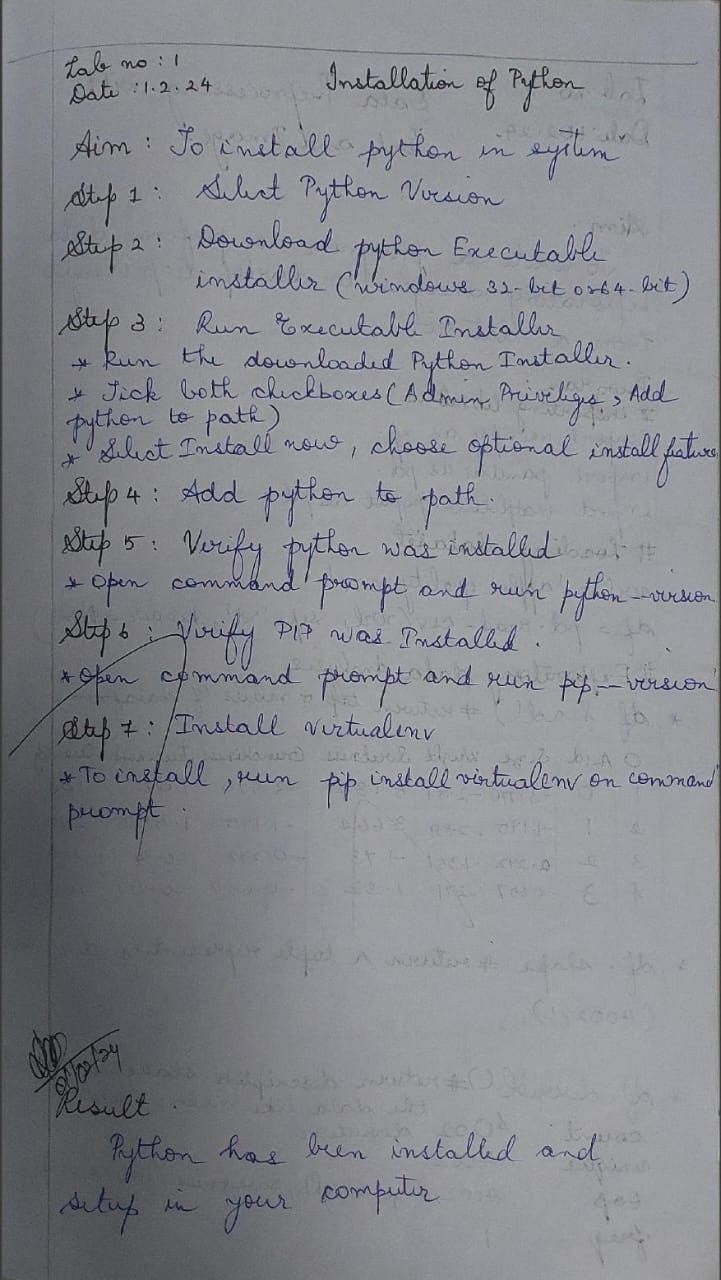 Lab no : 1
Date : 1.2.24
Installation of Python
Aim : To install python in system
Step 1 : Select Python Version
Step 2 : Download python Executable
installer (windows 32-bit or 64-bit)
Step 3 : Run Executable Installer
* Run the downloaded Python Installer.
* Tick both checkboxes (Admin Priviliges, Add
python to path)
* Select Install now, choose optional install feature
Step 4 : Add python to path.
Step 5 : Verify python was installed
* open command prompt and run python --version
Step 6 : Verify PIP was Installed.
* open command prompt and run pip --version
Step 7 : Install virtualenv
* To install, run pip install virtualenv on command
prompt.
Result.
Python has been installed and
setup in your computer